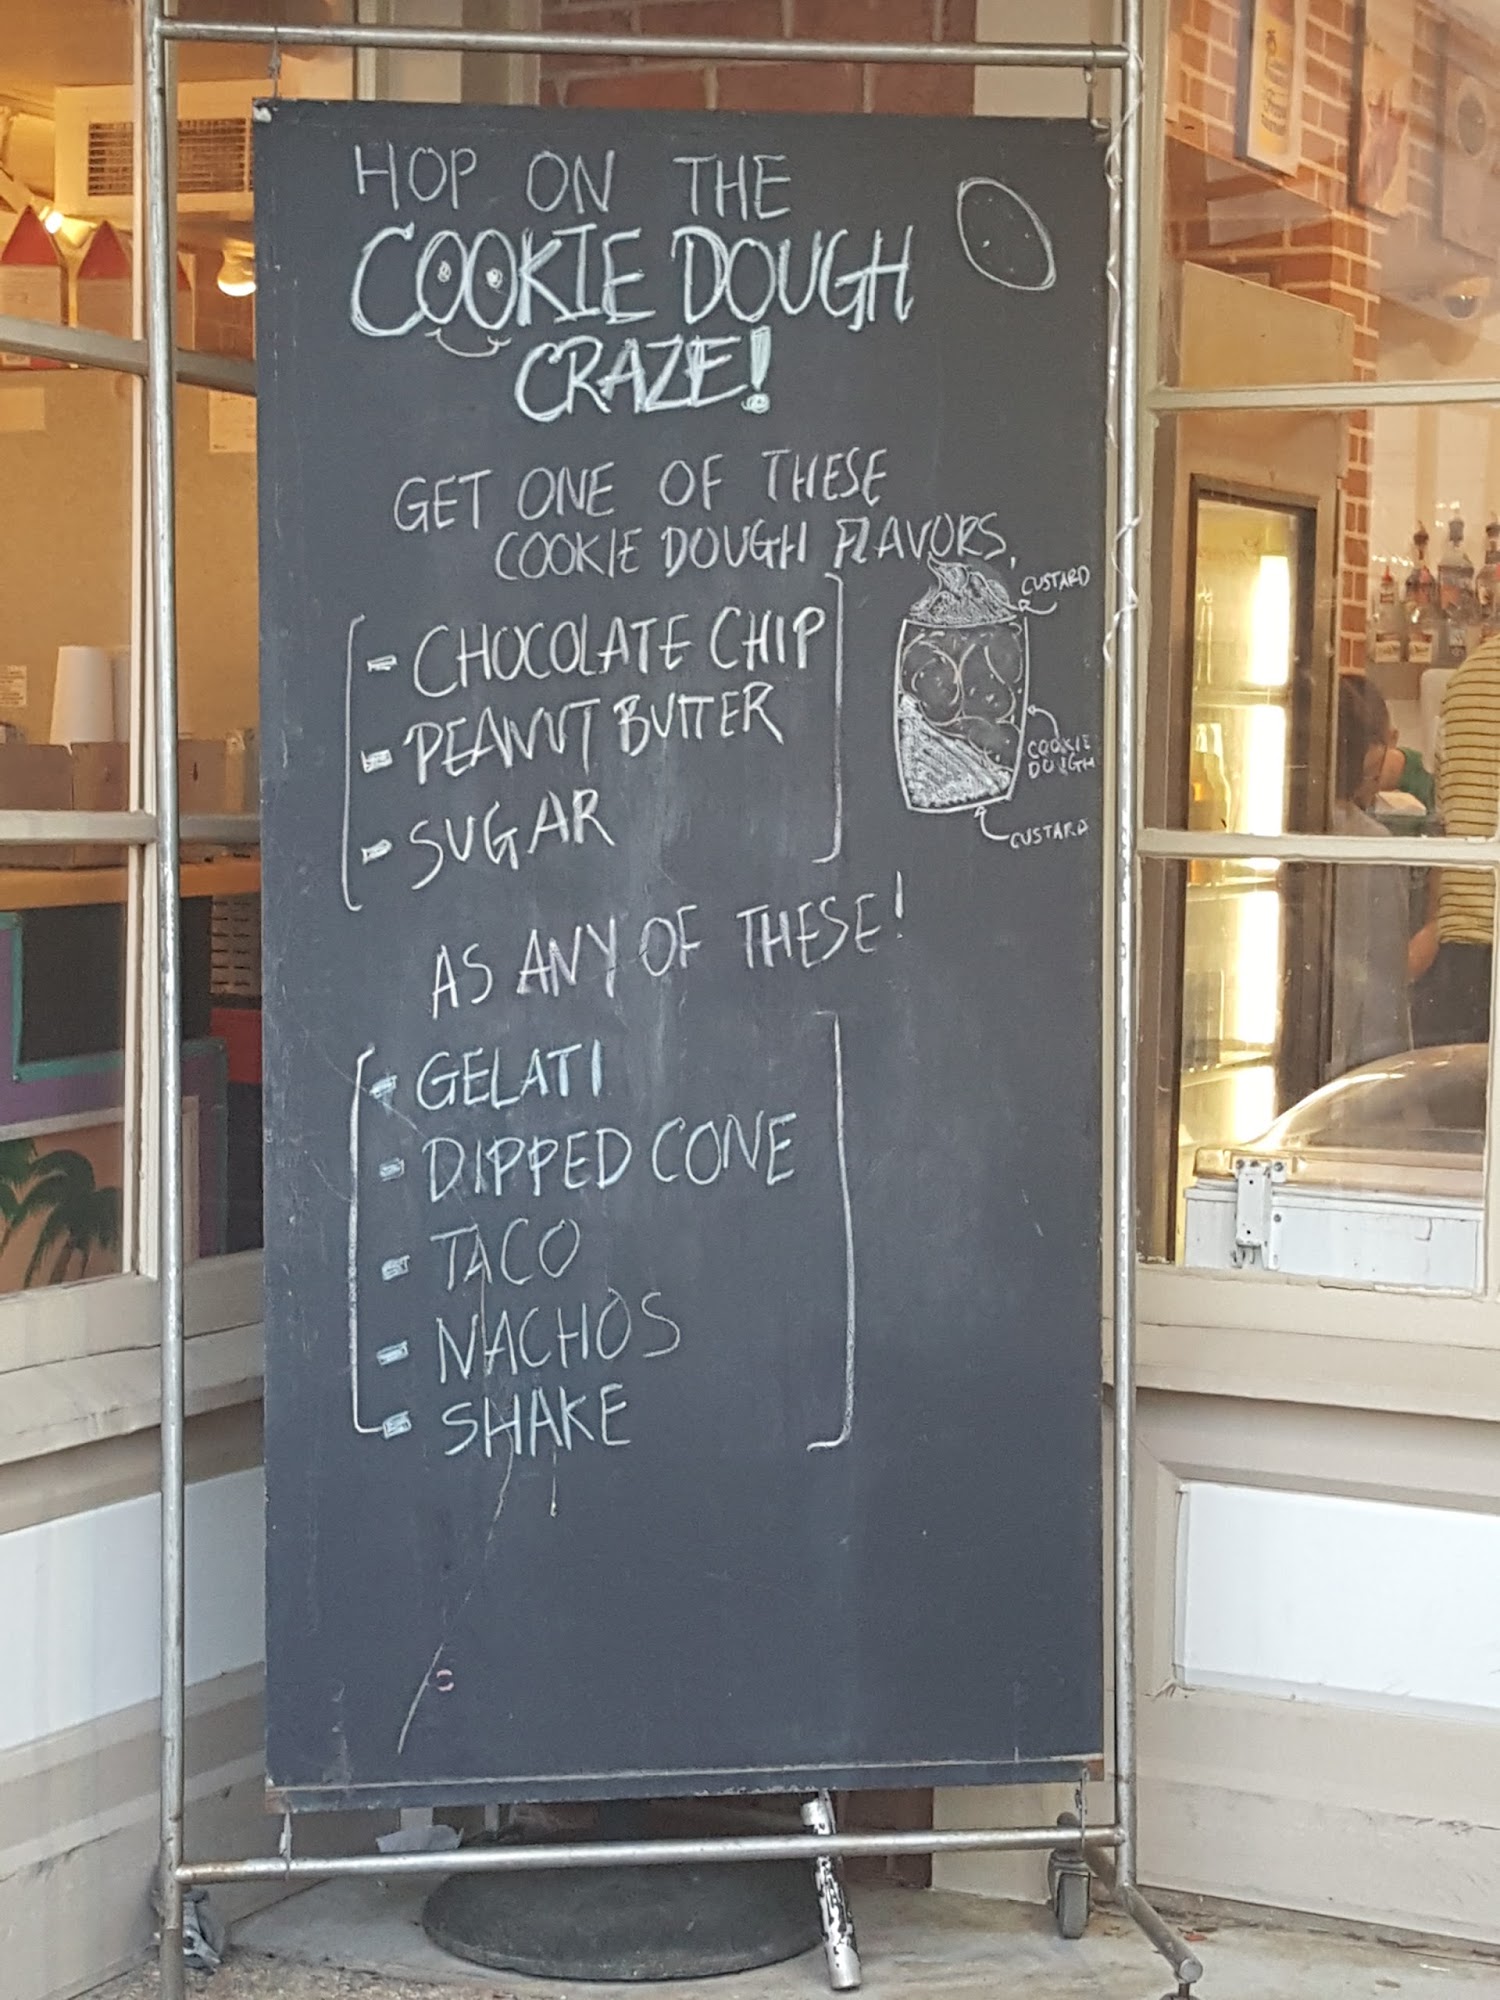 HOP ON THE
COOKIE DOUGH
CRAZE!
GET ONE OF THESE
COOKIE DOUGH FLAVORS,
- CHOCOLATE CHIP
- PEANUT BUTTER
- SUGAR
CUSTARD
COOKIE
DOUGH
CUSTARD
AS ANY OF THESE!
- GELATI
- DIPPED CONE
- TACO
- NACHOS
- SHAKE